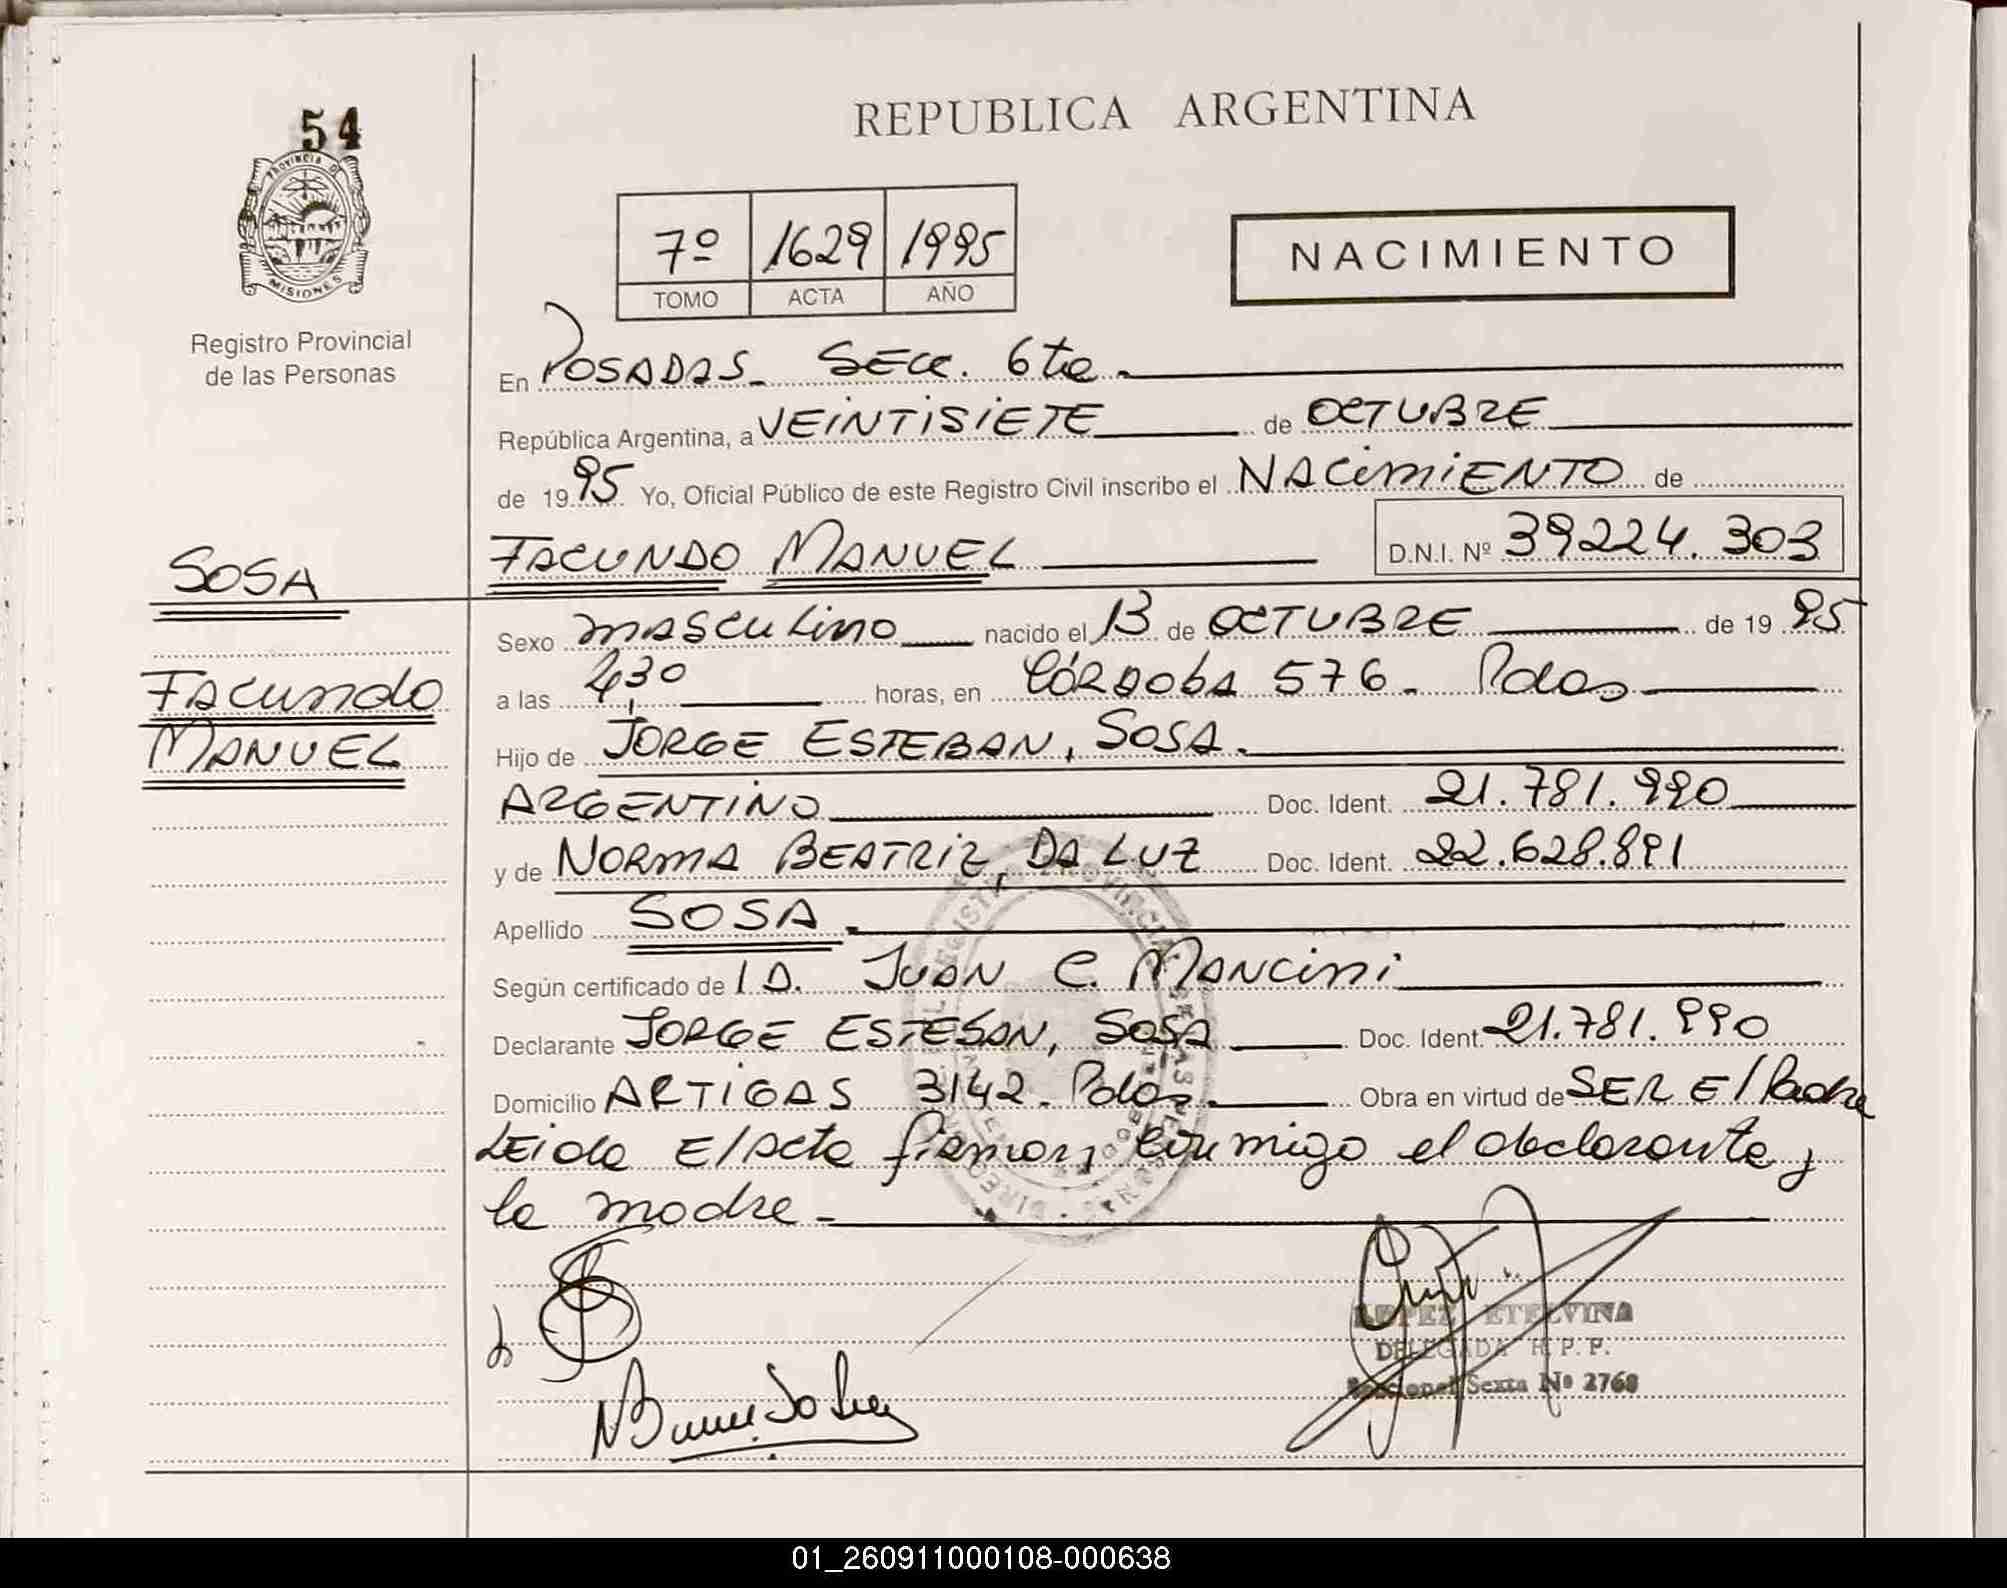 54
PROVINCIA DE
MISIONES
Registro Provincial
de las Personas
SOSA
FACUNDO
MANUEL
REPUBLICA ARGENTINA
7º 1629 1995
TOMO ACTA AÑO
NACIMIENTO
En POSADAS - SECC. 6ta.
República Argentina, a VEINTISIETE de OCTUBRE
de 19 95 Yo, Oficial Público de este Registro Civil inscribo el NACIMIENTO de
FACUNDO MANUEL D.N.I. Nº 39224.303
Sexo MASCULINO nacido el 13 de OCTUBRE de 19 95
a las 4,30 horas, en CÓRDOBA 576 - Pdas
Hijo de JORGE ESTEBAN, SOSA.
ARGENTINO Doc. Ident. 21.781.990
y de NORMA BEATRIZ, DA LUZ Doc. Ident. 22.628.891
Apellido SOSA.
Según certificado de I.D. JUAN C. MANCINI
Declarante JORGE ESTEBAN, SOSA Doc. Ident. 21.781.990
Domicilio ARTIGAS 3142 - Pdas. Obra en virtud de SER El Padre
LEida El Acta firman, conmigo el declarante y
la madre -
LOPEZ ETELVINA
DELEGADA R.P.P.
Seccional Sexta Nº 2768
01_260911000108-000638